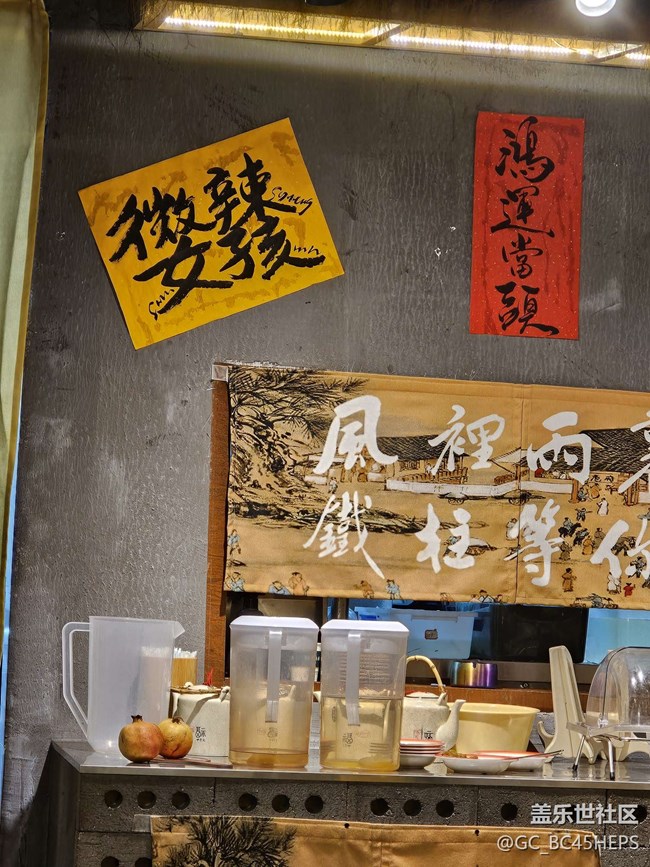 微辣
女孩
鴻運當頭
風裡雨
鐵柱等你
盖乐世社区
@GC_BC45HEPS